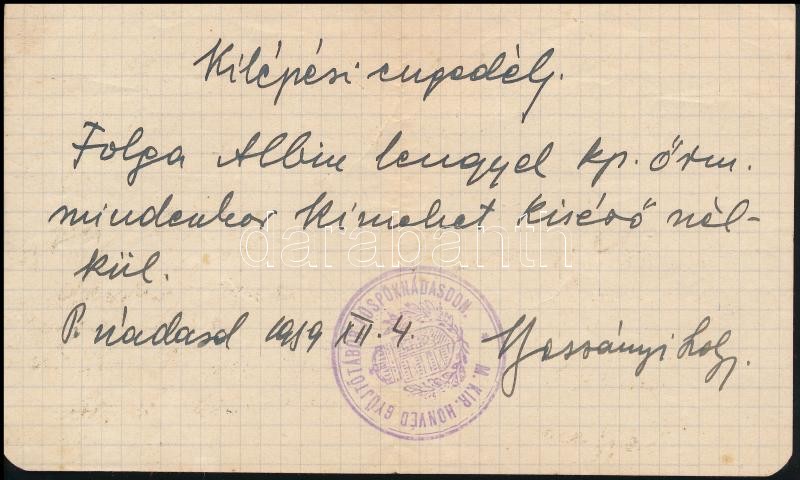 Kilépési engedély.
Folga Albin lengyel kp. őrm.
mindenkor kimehet kisérő nél-
kül.
P. nádasd 1939 XII. 4.
M. KIR. HONVÉD GYŰJTŐTÁBOR PÜSPÖKNÁDASDON.
darabanth